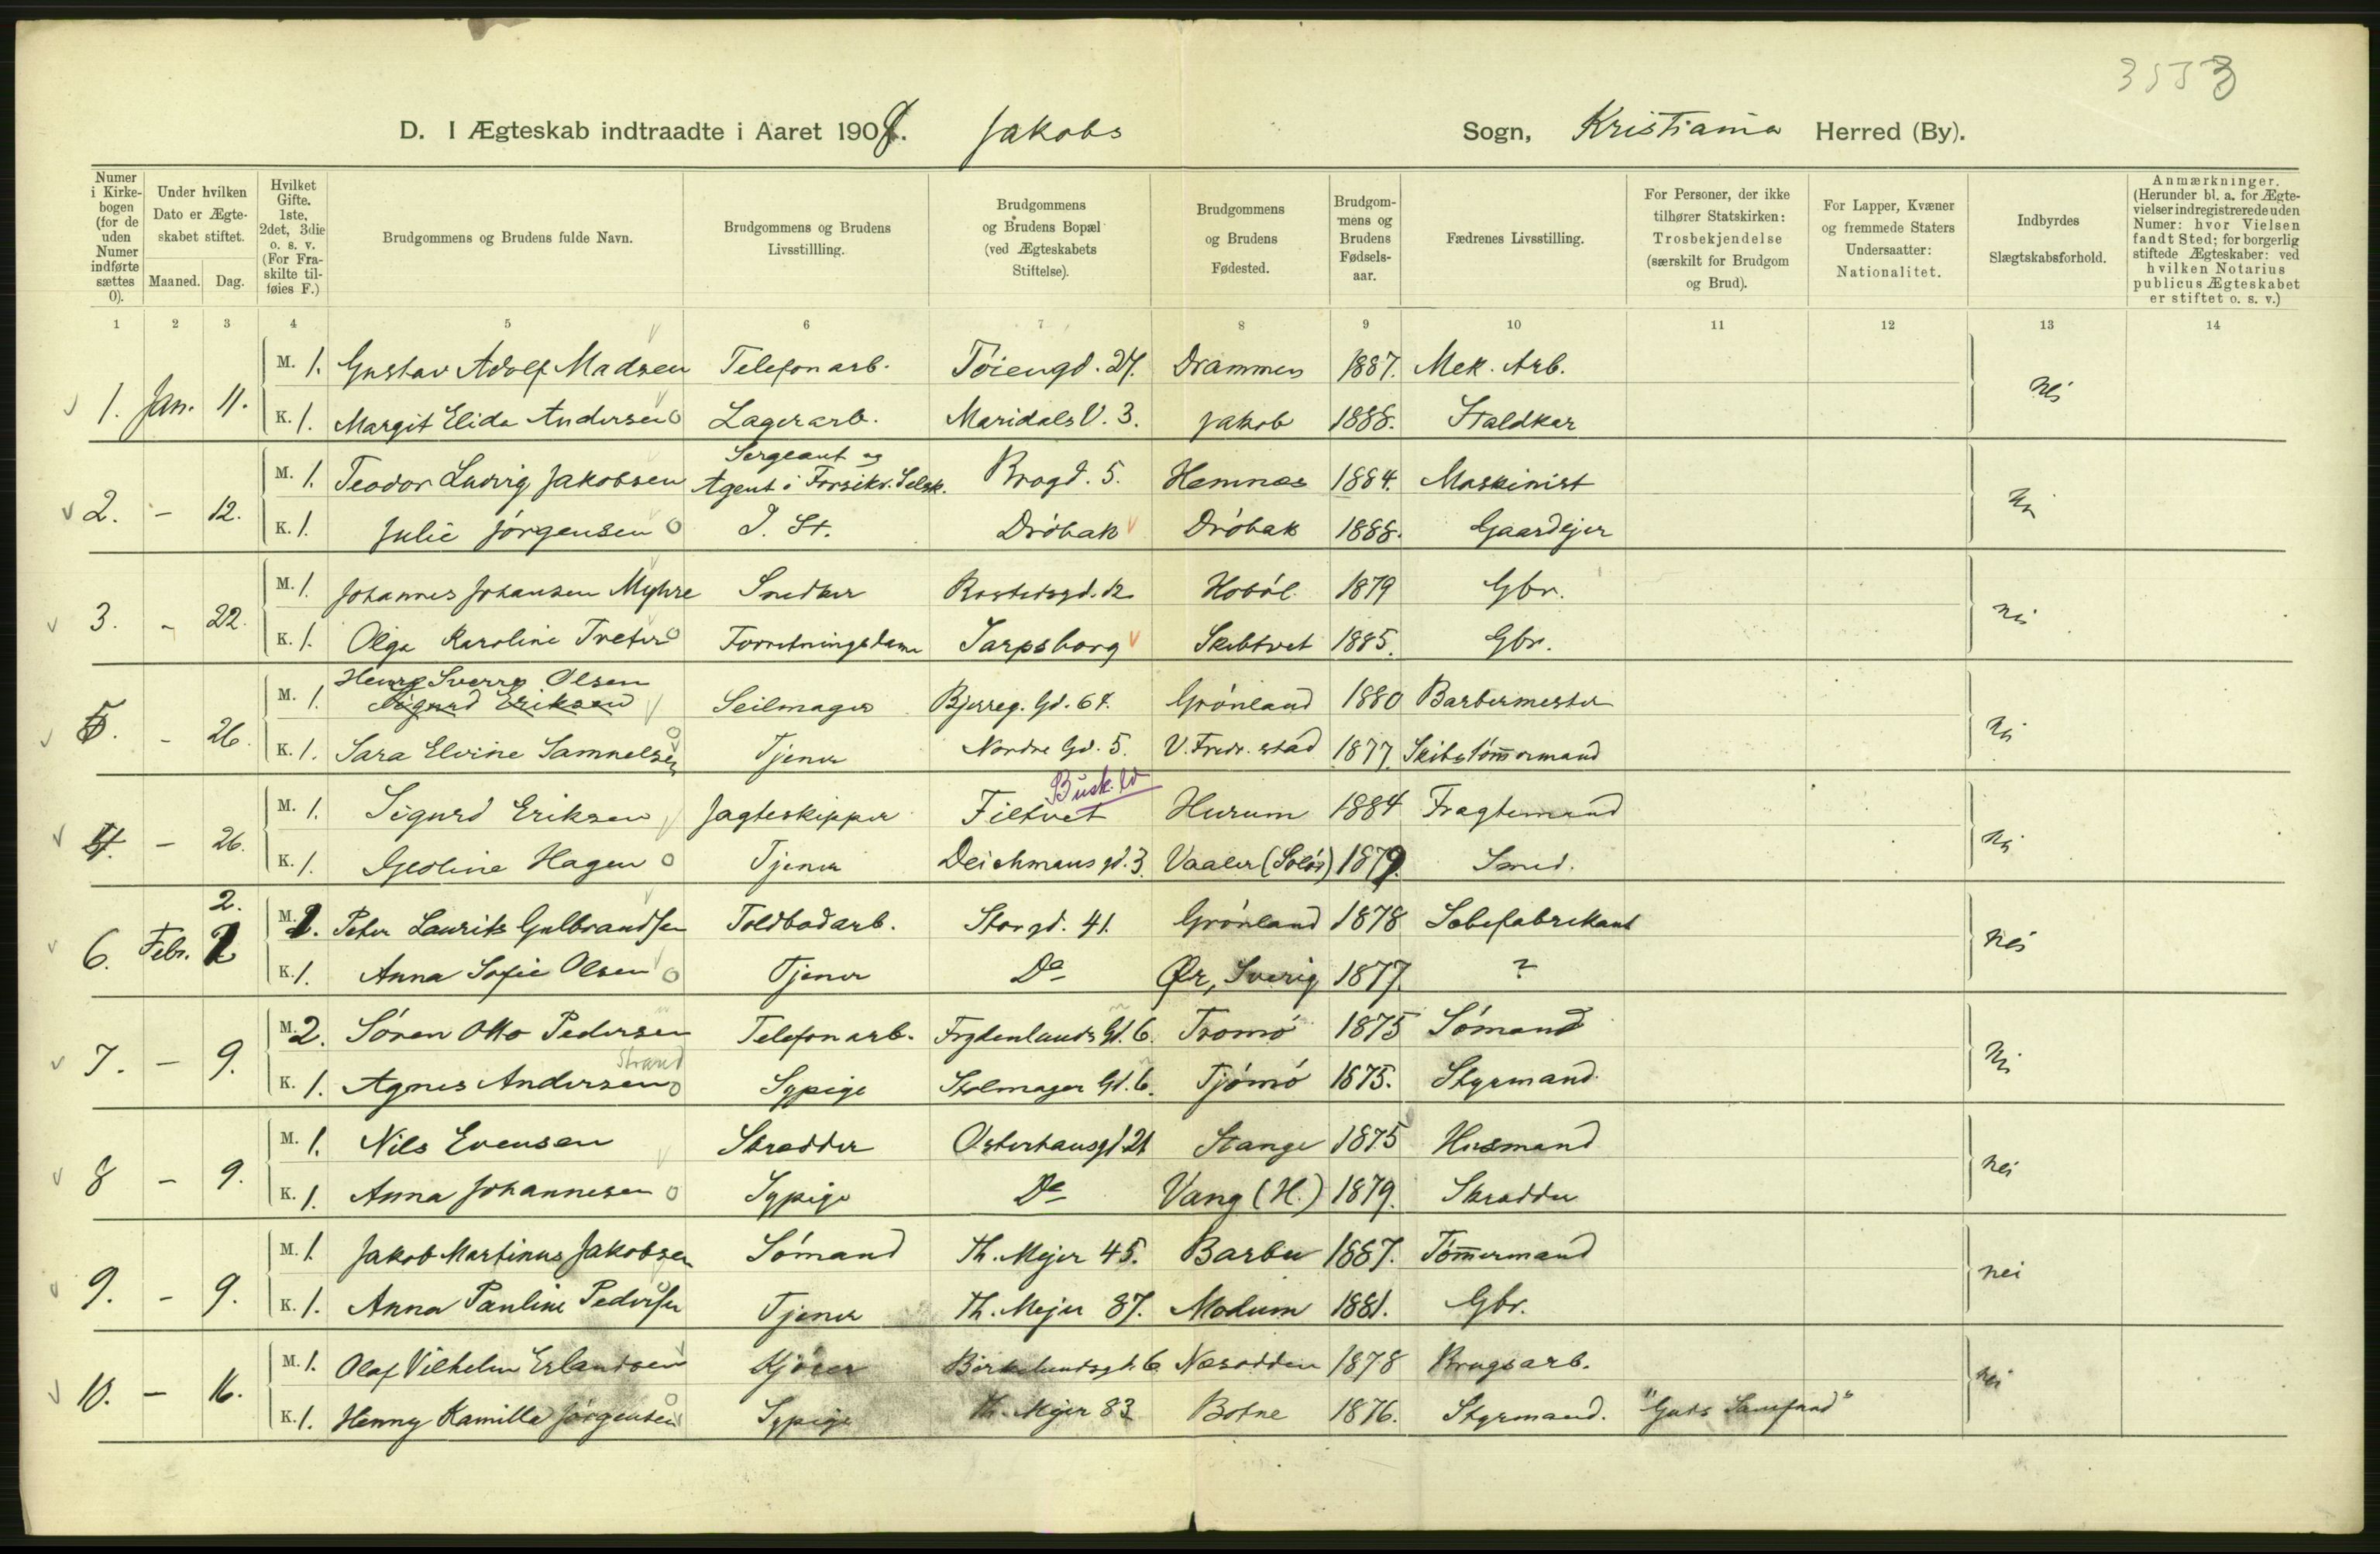 D. I Ægteskab indtraadte i Aaret 1908. Jakobs Sogn, Kristiania Herred (By).
Numer i Kirkebogen (for de uden Numer indførte sættes 0).
Under hvilken Dato er Ægteskabet stiftet.
Maaned. Dag.
Hvilket Gifte. 1ste, 2det, 3die o. s. v. (For Fraskilte tilføies F.)
Brudgommens og Brudens fulde Navn.
Brudgommens og Brudens Livsstillling.
Brudgommens og Brudens Bopæl (ved Ægteskabets Stiftelse).
Brudgommens og Brudens Fødested.
Brudgommens og Brudens Fødselsaar.
Fædrenes Livsstilling.
For Personer, der ikke tilhører Statskirken: Trosbekjendelse (særskilt for Brudgom og Brud).
For Lapper, Kvæner og fremmede Staters Undersaatter: Nationalitet.
Indbyrdes Slægtskabsforhold.
Anmærkninger. (Herunder bl. a. for Ægtevielser indregistrerede uden Numer: hvor Vielsen fandt Sted; for borgerlig stiftede Ægteskaber: ved hvilken Notarius publicus Ægteskabet er stiftet o. s. v.)
1 2 3 4 5 6 7 8 9 10 11 12 13 14
M. 1. Gustav Adolf Madsen Telefonarb. Töiengd. 27. Drammen 1887. Mek. Arb.
1. Jan. 11. nei
K. 1. Margit Elida Andersen Lagerarb. Maridals V. 3. Jakob 1888. Staldkar
Sergeant og
M. 1. Teodor Ludvig Jakobsen Agent i Forsikr. Selsk. Brogd. 5. Hemnæs 1884. Maskinist
2. - 12. nei
K. 1. Julie Jörgensen Dröbak Dröbak 1888. Gaardejer
M. 1. Johannes Johansen Myhre Snedker Rostedsgd. 12. Hoböl 1879 Gbr.
3. - 22. nei
K. 1. Olga Karoline Treter Forretningsdame Sarpsborg Skibtvet 1885. Gbr.
Henry Sverre Olsen
M. 1. Sigurd Eriksen Seilmager Bjerreg. Gd. 67. Grönland 1880 Barbermester
5. - 26. nei
K. 1. Sara Elvine Samuelsen Tjener Nordre Gd. 5. V. Fredr.stad 1877. Skibstöm̄ermand
Busk. 
M. 1. Sigurd Eriksen Jagteskipper Filtvet Hurum 1884 Fragtemand
4. - 26. nei
K. 1. Geoline Hagen Tjener Deichmans gd. 3. Vaaler (Solör) 1879. Smed.
2.
M. 2. Peter Laurits Gulbrandsen Toldbodarb. Storgd. 41. Grönland 1878 Sæbefabrikant
6. Febr. 2 nei
K. 1. Anna Sofie Olsen Tjener Do Ør, Sverig 1877. ?
M. 2. Sören Otto Pedersen Telefonarb. Frydenlunds Gd. 6. Tromö 1875 Sömand
7. - 9. nei
Strand
K. 1. Agnes Andersen Sypige Stolmager Gd. 6. Tjömö 1875. Styrmand.
M. 1. Nils Evensen Skrædder Osterhausgd. 21 Stange 1875 Husmand
8 - 9. nei
K. 1. Anna Johannesen Sypige Do Vang (H.) 1879. Skrædder
M. 1. Jakob Martinus Jakobsen Sömand Th. Mejer 45. Barbu 1887. Töm̄ermand
9. - 9. nei
K. 1. Anna Pauline Pedersen Tjener Th. Mejer 87. Modum 1881. Gbr.
M. 1. Olaf Vilhelm Erlandsen Kjörer Birkelundsgd. 6 Næsodden 1878 Brugsarb.
10. - 16. nei
K. 1. Henny Kamilla Jörgensen Sypige Th. Mejer 83 Botne 1876. Styrmand. "Guds Samfund"